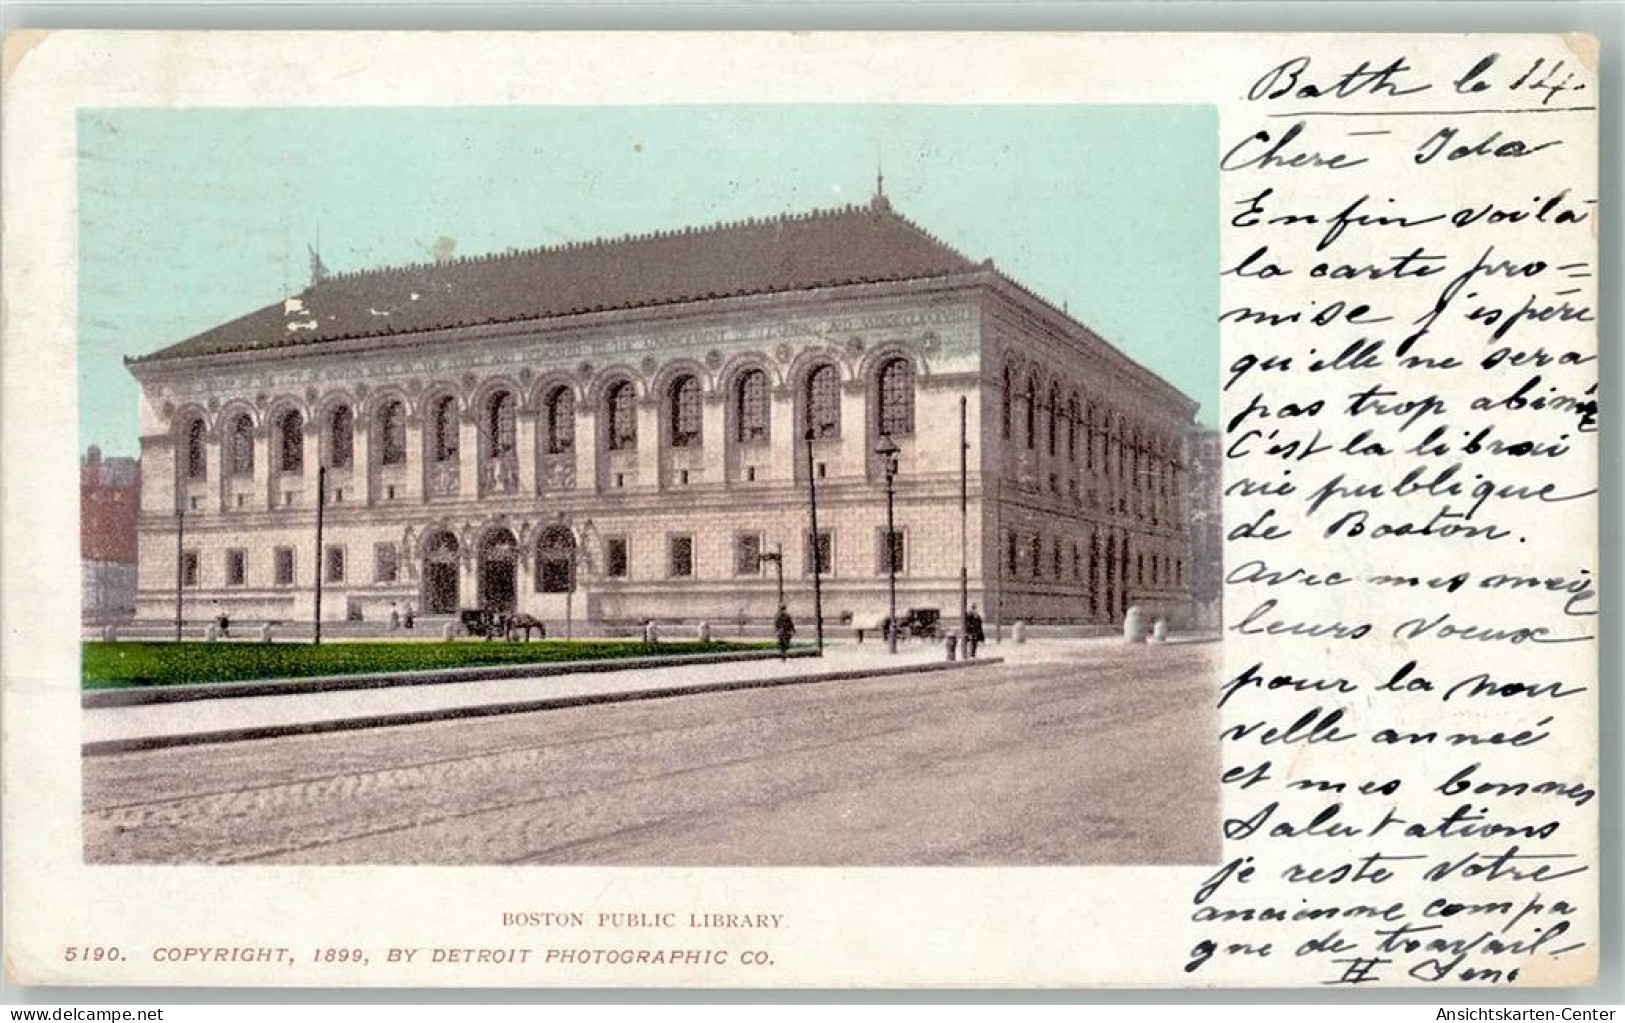 Bath le 14.
Cheré Ida
Enfin voilá
la carte pro=
mise j'espére
qu'elle ne sera
pas trop abimé
C'est la librai
rie publique
de Boston.
Avec mes meil
leurs voeux
pour la nou
velle anneé
et mes bonnes
Salutations
je reste votre
ancienne compa
gne de travail.
BOSTON PUBLIC LIBRARY.
5190. COPYRIGHT, 1899, BY DETROIT PHOTOGRAPHIC CO.
www.delcampe.net
Ansichtskarten-Center